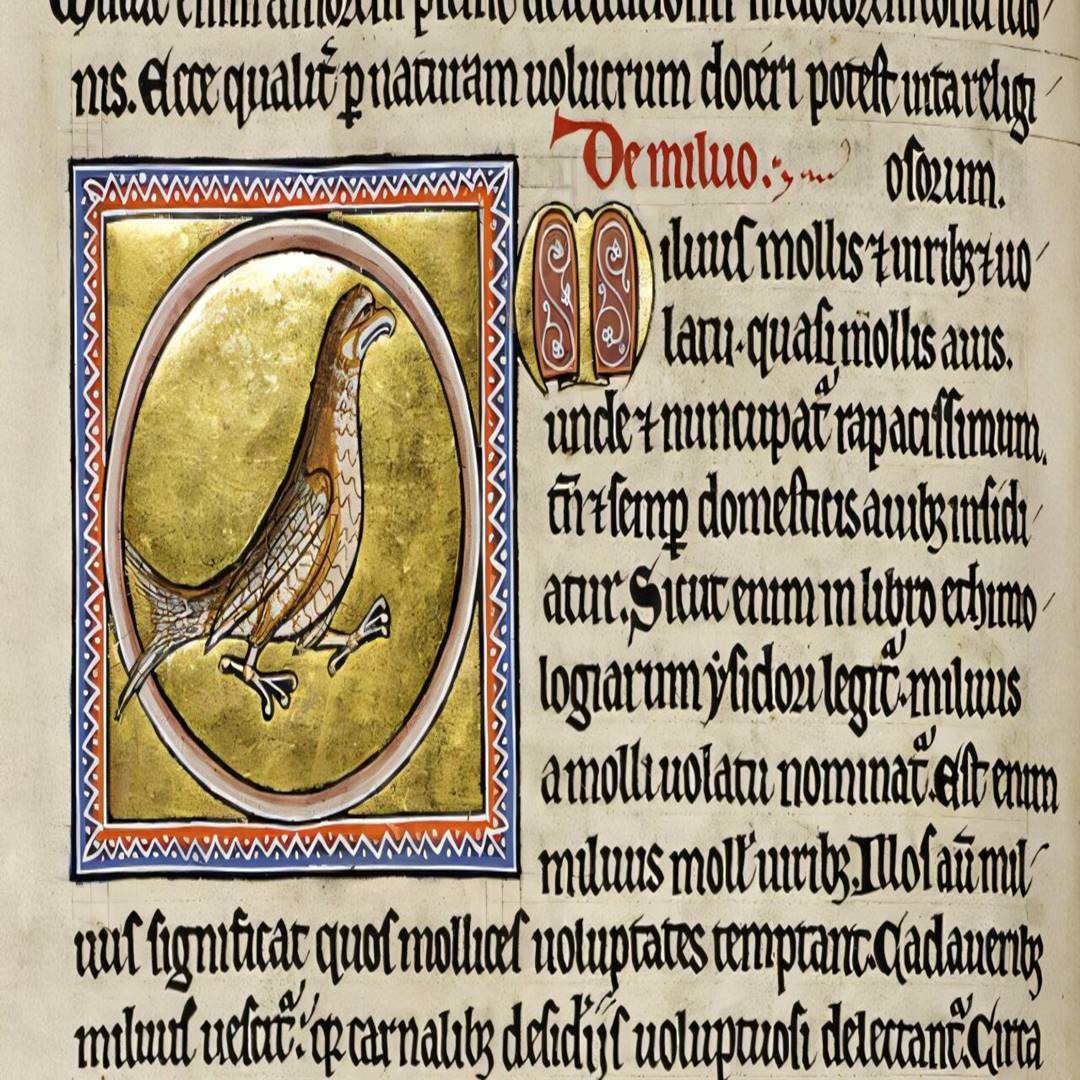 nis. Ecce qualit̄ ꝑ naturam uolucrum doceri potest uita religi
De miluo.
osorum.
Miluus mollis ⁊ uirib⁊ ⁊ uo
latu. quasi mollis auis.
unde ⁊ nuncupatᷓ rapacissimum
tn̄ ⁊ semꝑ domesticis auib⁊ insidi
atur. Sicut enim in libro ethimo
logiarum ẏsidori legitᷓ. miluus
a molli uolatu nominatᷓ. Est enim
miluus moll' uirib⁊. Illos aū mil
uus significat quos mollices uoluptates temptant. Cadauerib⁊
miluus uescitᷓ. qꝛ carnalib⁊ desidijs uoluptuosi delectantᷓ. Circa